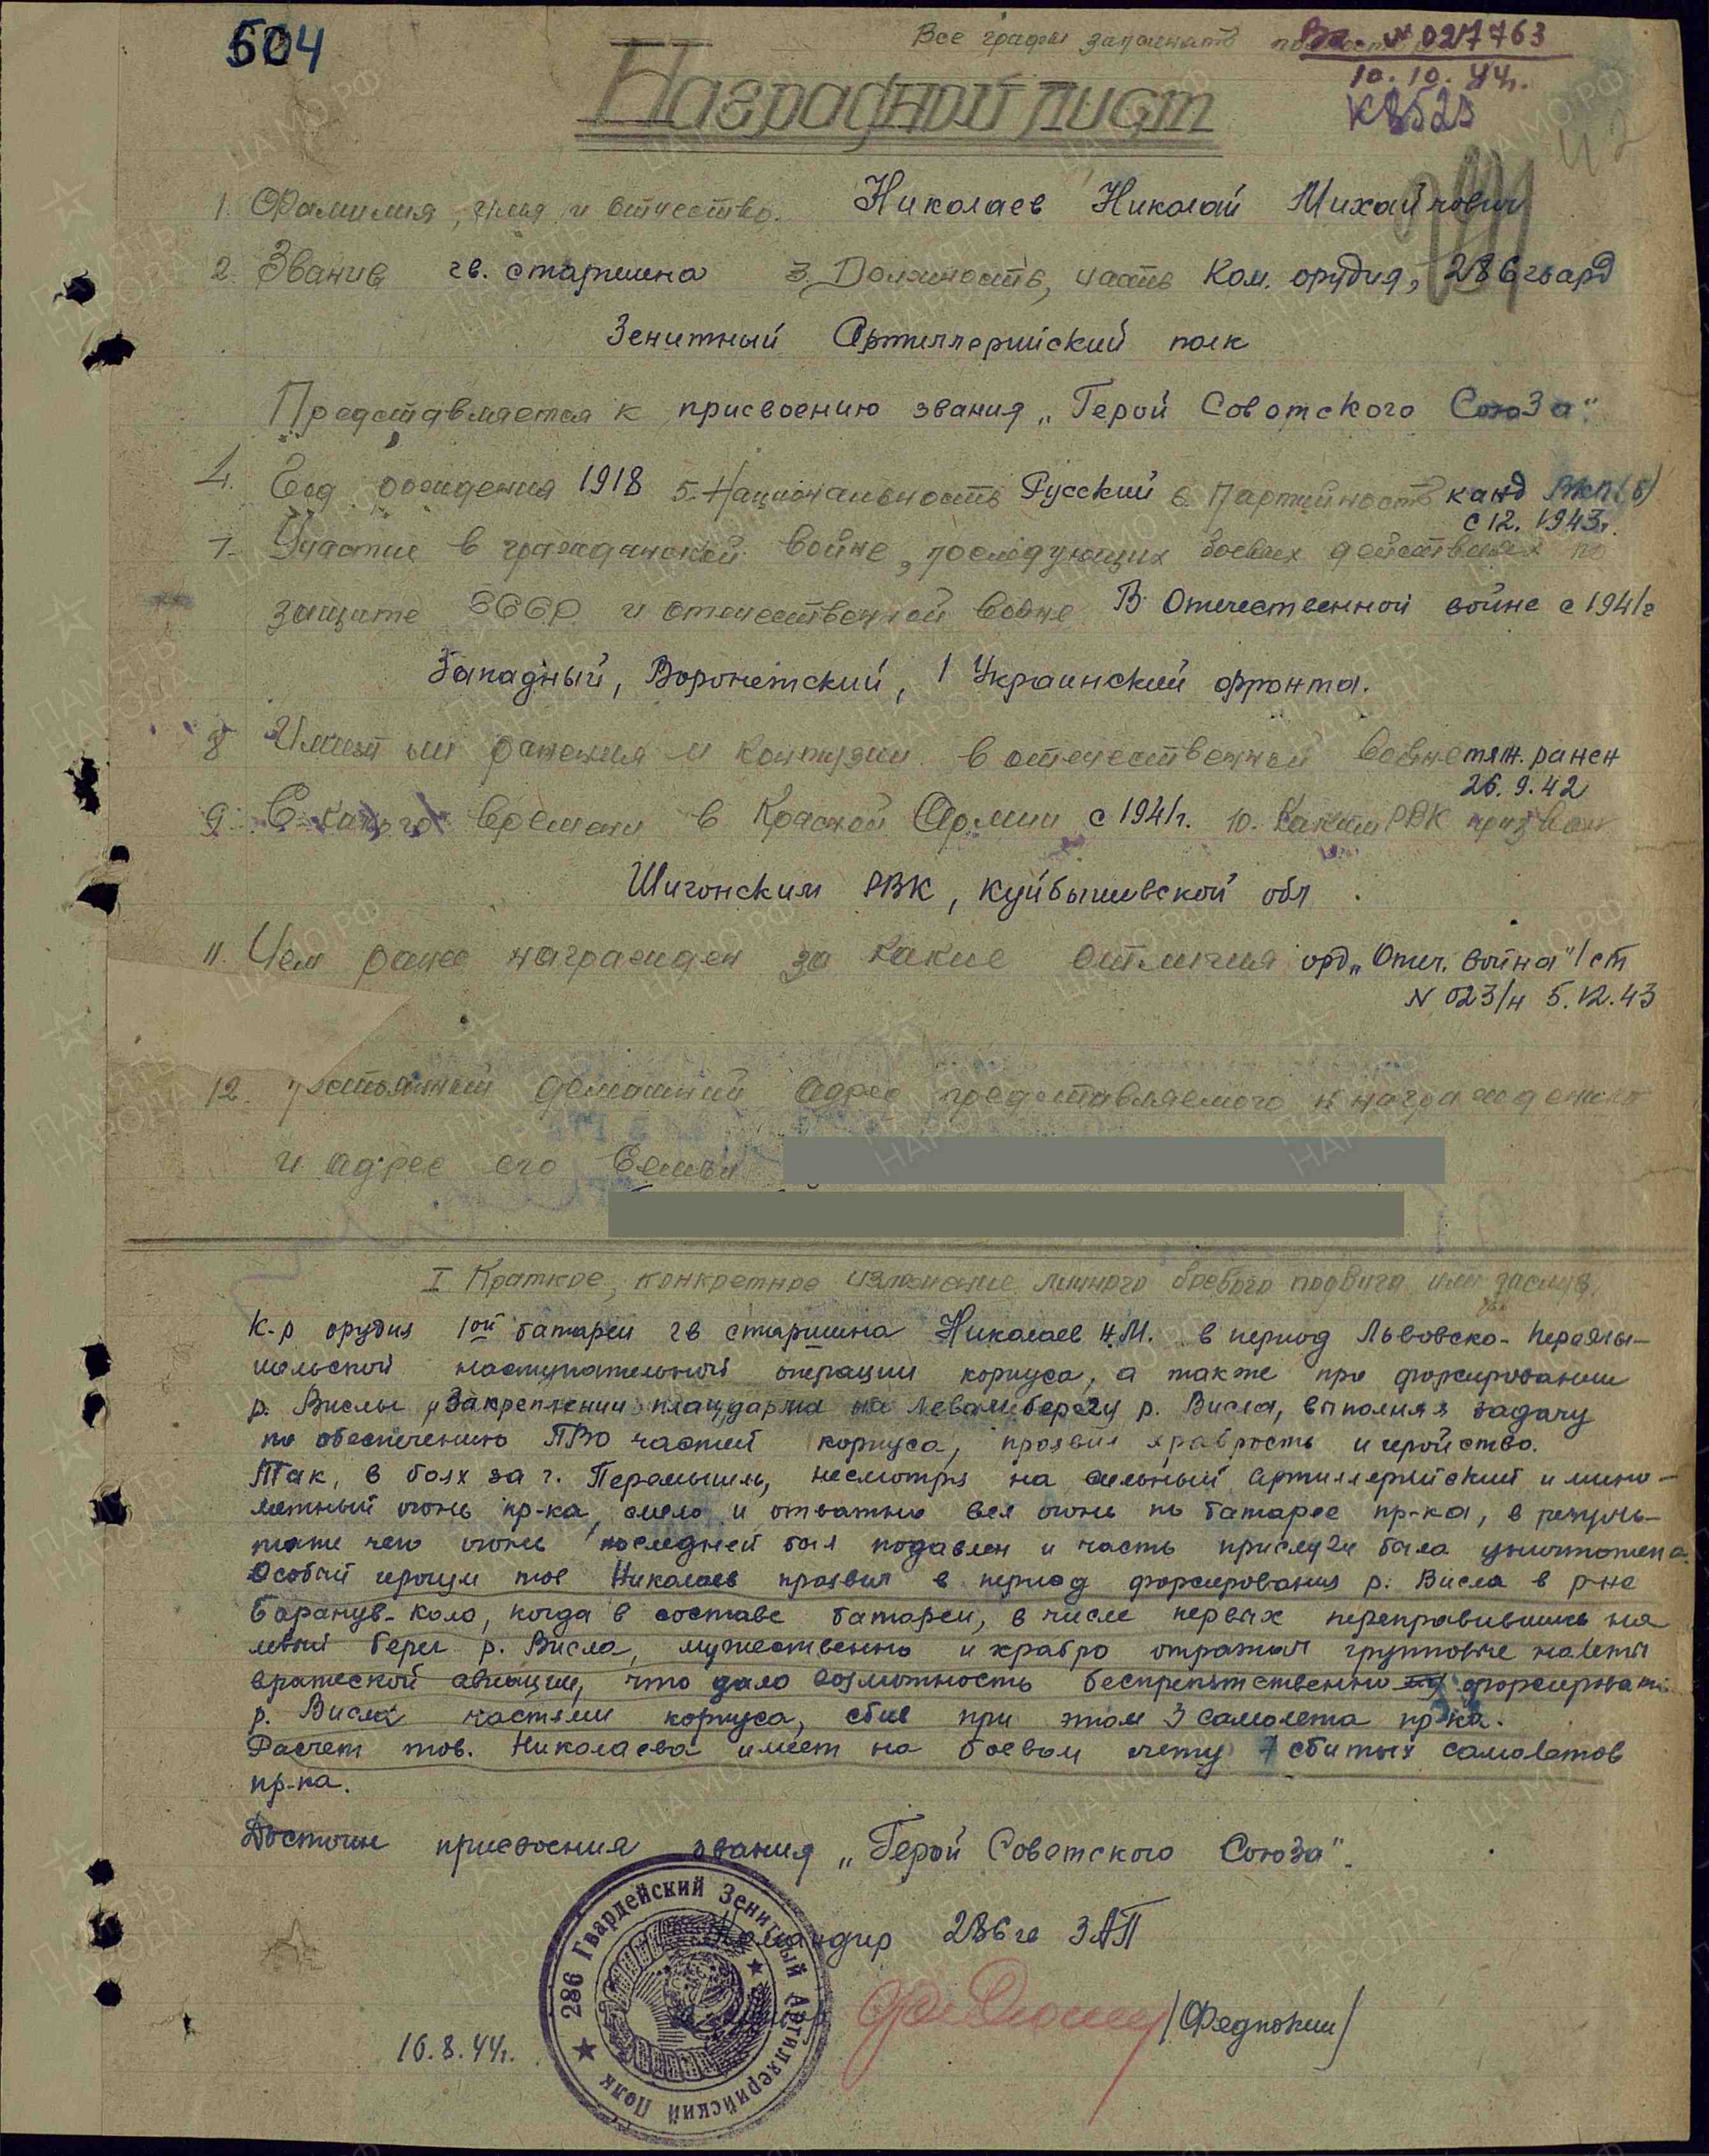 504
Все графы заполнять
Вх. № 027763
10.10.44г.
42
Наградной лист
1. Фамилия, имя и отчество. Николаев Николай Михайлович
2. Звание гв. старшина 3. Должность, часть Ком. орудия, 286 гвард
Зенитный Артиллерийский полк
Представляется к присвоению звания „Герой Советского Союза"
4. Год рождения 1918 5. Национальность Русский 6. Партийность канд ВКП(б)
с 12. 1943г.
7. Участие в гражданской войне, последующих боевых действиях по
защите СССР и отечественной войне В Отечественной войне с 1941г
Западный, Воронежский, 1 Украинский фронта.
8 Имеет ли ранения и контузии в отечественной войне тяж. ранен
26.9.42
9. С какого времени в Красной Армии с 1941г. 10. Каким РВК призван
Шигонским РВК, Куйбышевской обл.
11. Чем ранее награжден за какие отличия орд. „Отеч. война" I ст
N 023/н 5.12.43
12. Постоянный домашний адрес представляемого к награждению
и адрес его семьи
I Краткое, конкретное изложение личного боевого подвига или заслуг
К-р орудия 1ой батареи гв старшина Николаев Н.М. в период Львовско-Перемы-
шльской наступательной операции корпуса, а также при форсировании
р. Вислы и закреплении плацдарма на левом берегу р. Висла, выполняя задачу
по обеспечению ПВО частей корпуса, проявил храбрость и геройство.
Так, в боях за г. Перемышль, несмотря на сильный артиллерийский и мино-
метный огонь пр-ка, смело и отважно вел огонь по батарее пр-ка, в резуль-
тате чего огонь последней был подавлен и часть прислуги была уничтожена.
Особый героизм тов Николаев проявил в период форсирования р. Висла в р-не
Баранув-Коло, когда в составе батареи, в числе первых переправившись на
левый берег р. Висла, мужественно и храбро отражал групповые налеты
вражеской авиации, что дало возможность беспрепятственно форсировать
р. Висла частями корпуса, сбив при этом 3 самолета пр-ка.
Расчет тов. Николаева имеет на боевом счету 7 сбитых самолетов
пр-ка.
Достоин присвоения звания „Герой Советского Союза".
Командир 286 гв ЗАП
/Федюнин/
16.8.44г.
286 Гвардейский Зенитный Артиллерийский Полк
ПАМЯТЬ НАРОДА
ЦА МО РФ